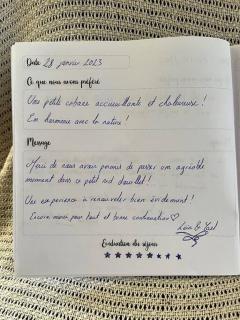 Date 28 janvier 2023
Ce que nous avons préféré
Une petite cabane accueillante et chaleureuse !
En harmonie avec la nature !
Message
Merci de nous avoir permis de passer un agréable
moment dans ce petit nid douillet !
Une expérience à renouveler bien évidemment !
Encore merci pour tout et bonne continuation ♡
&
Evaluation du séjour
★★★★★★★★